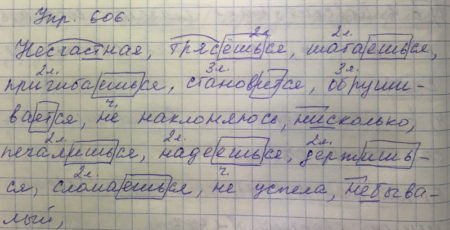 Упр. 606.
2л. 2л.
Несчастная, трясёшься, шатаешься,
2л. 3л. 3л.
пригибаешься, становится, обруши-
ч.
вается, не наклоняюсь, нисколько,
2л. 2л. 2л.
печалишься, надеешься, держишь-
2л. ч.
ся, сломаешься, не успела, небыва-
лый,